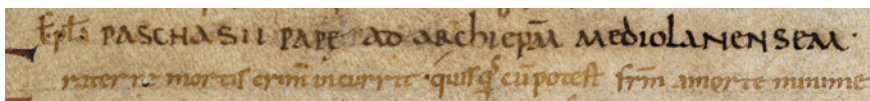 Epl̃ PASCHASII PAPE AD ARChIEPM̃ MEDIOLANENSEM·
rater ne mortis crim̃ incurrit· quisq̃s cũ potest fr̃m a morte minime